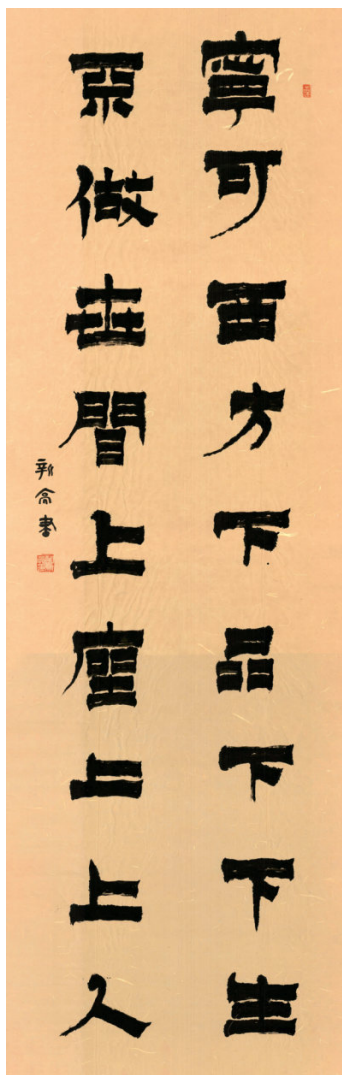 寧可西方下品下下生
不做世間上座上上人
新高書